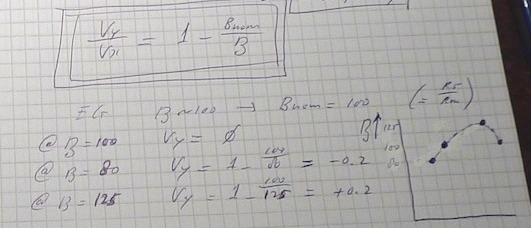 Vy/Vx = 1 - Bnom/B
EG B~100 → Bnom = 100 (= R5/Rm)
@ B=100 Vy = ∅
@ B=80 Vy = 1 - 100/80 = -0.2
@ B=125 Vy = 1 - 100/125 = +0.2
B↑
125
100
80